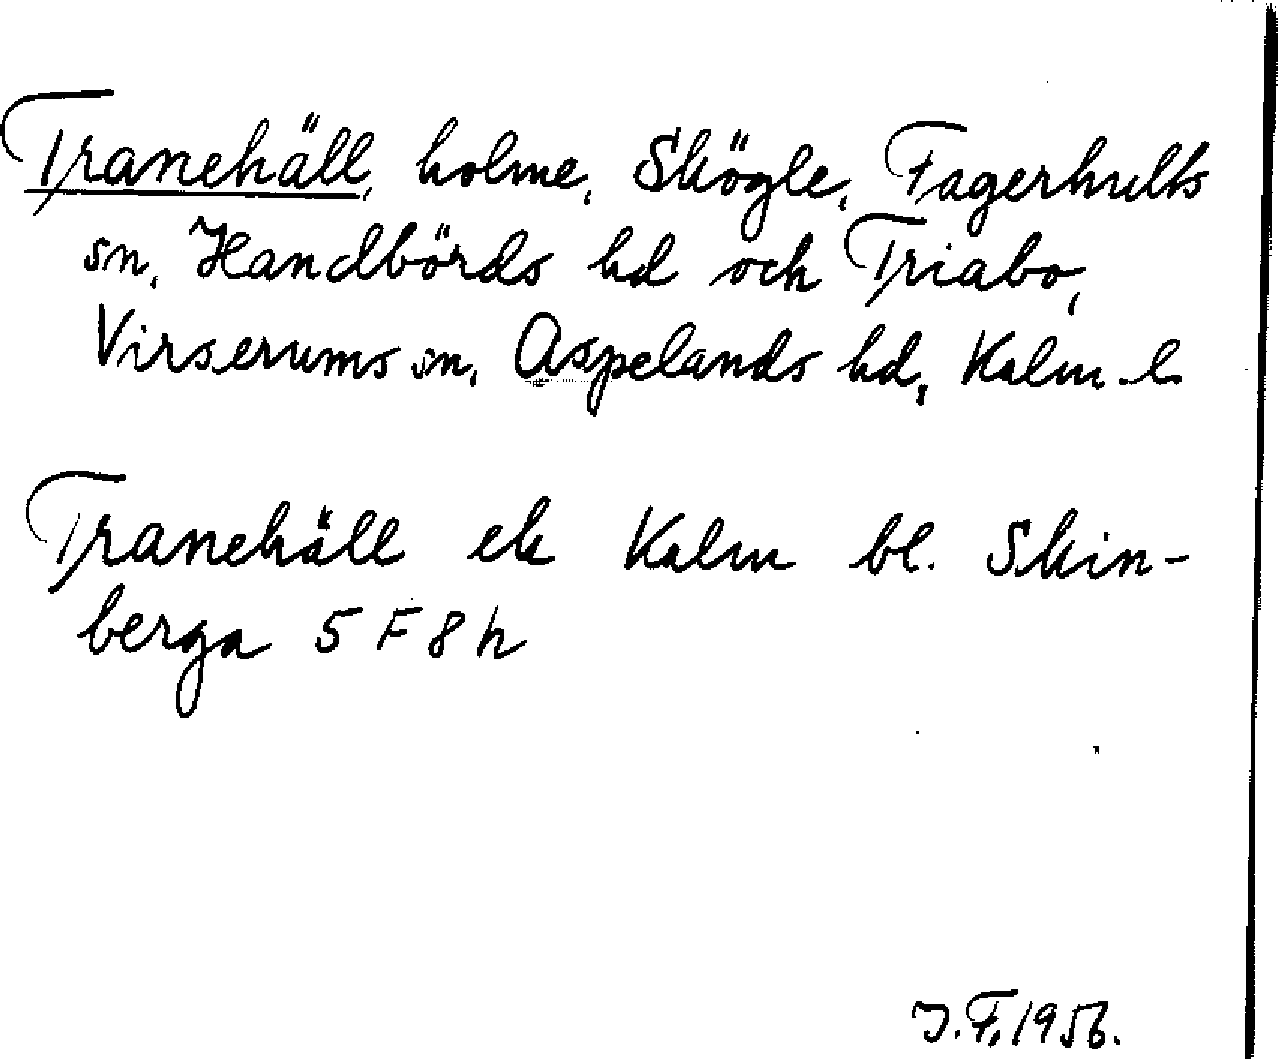 Tranehäll, holme, Skögle, Fagerhults
sn, Handbörds hd och Triabo,
Virserums sn, Aspelands hd, Kalm. l.
Tranehäll ek Kalm bl. Skin-
berga 5 F 8 h
J. F. 1956.